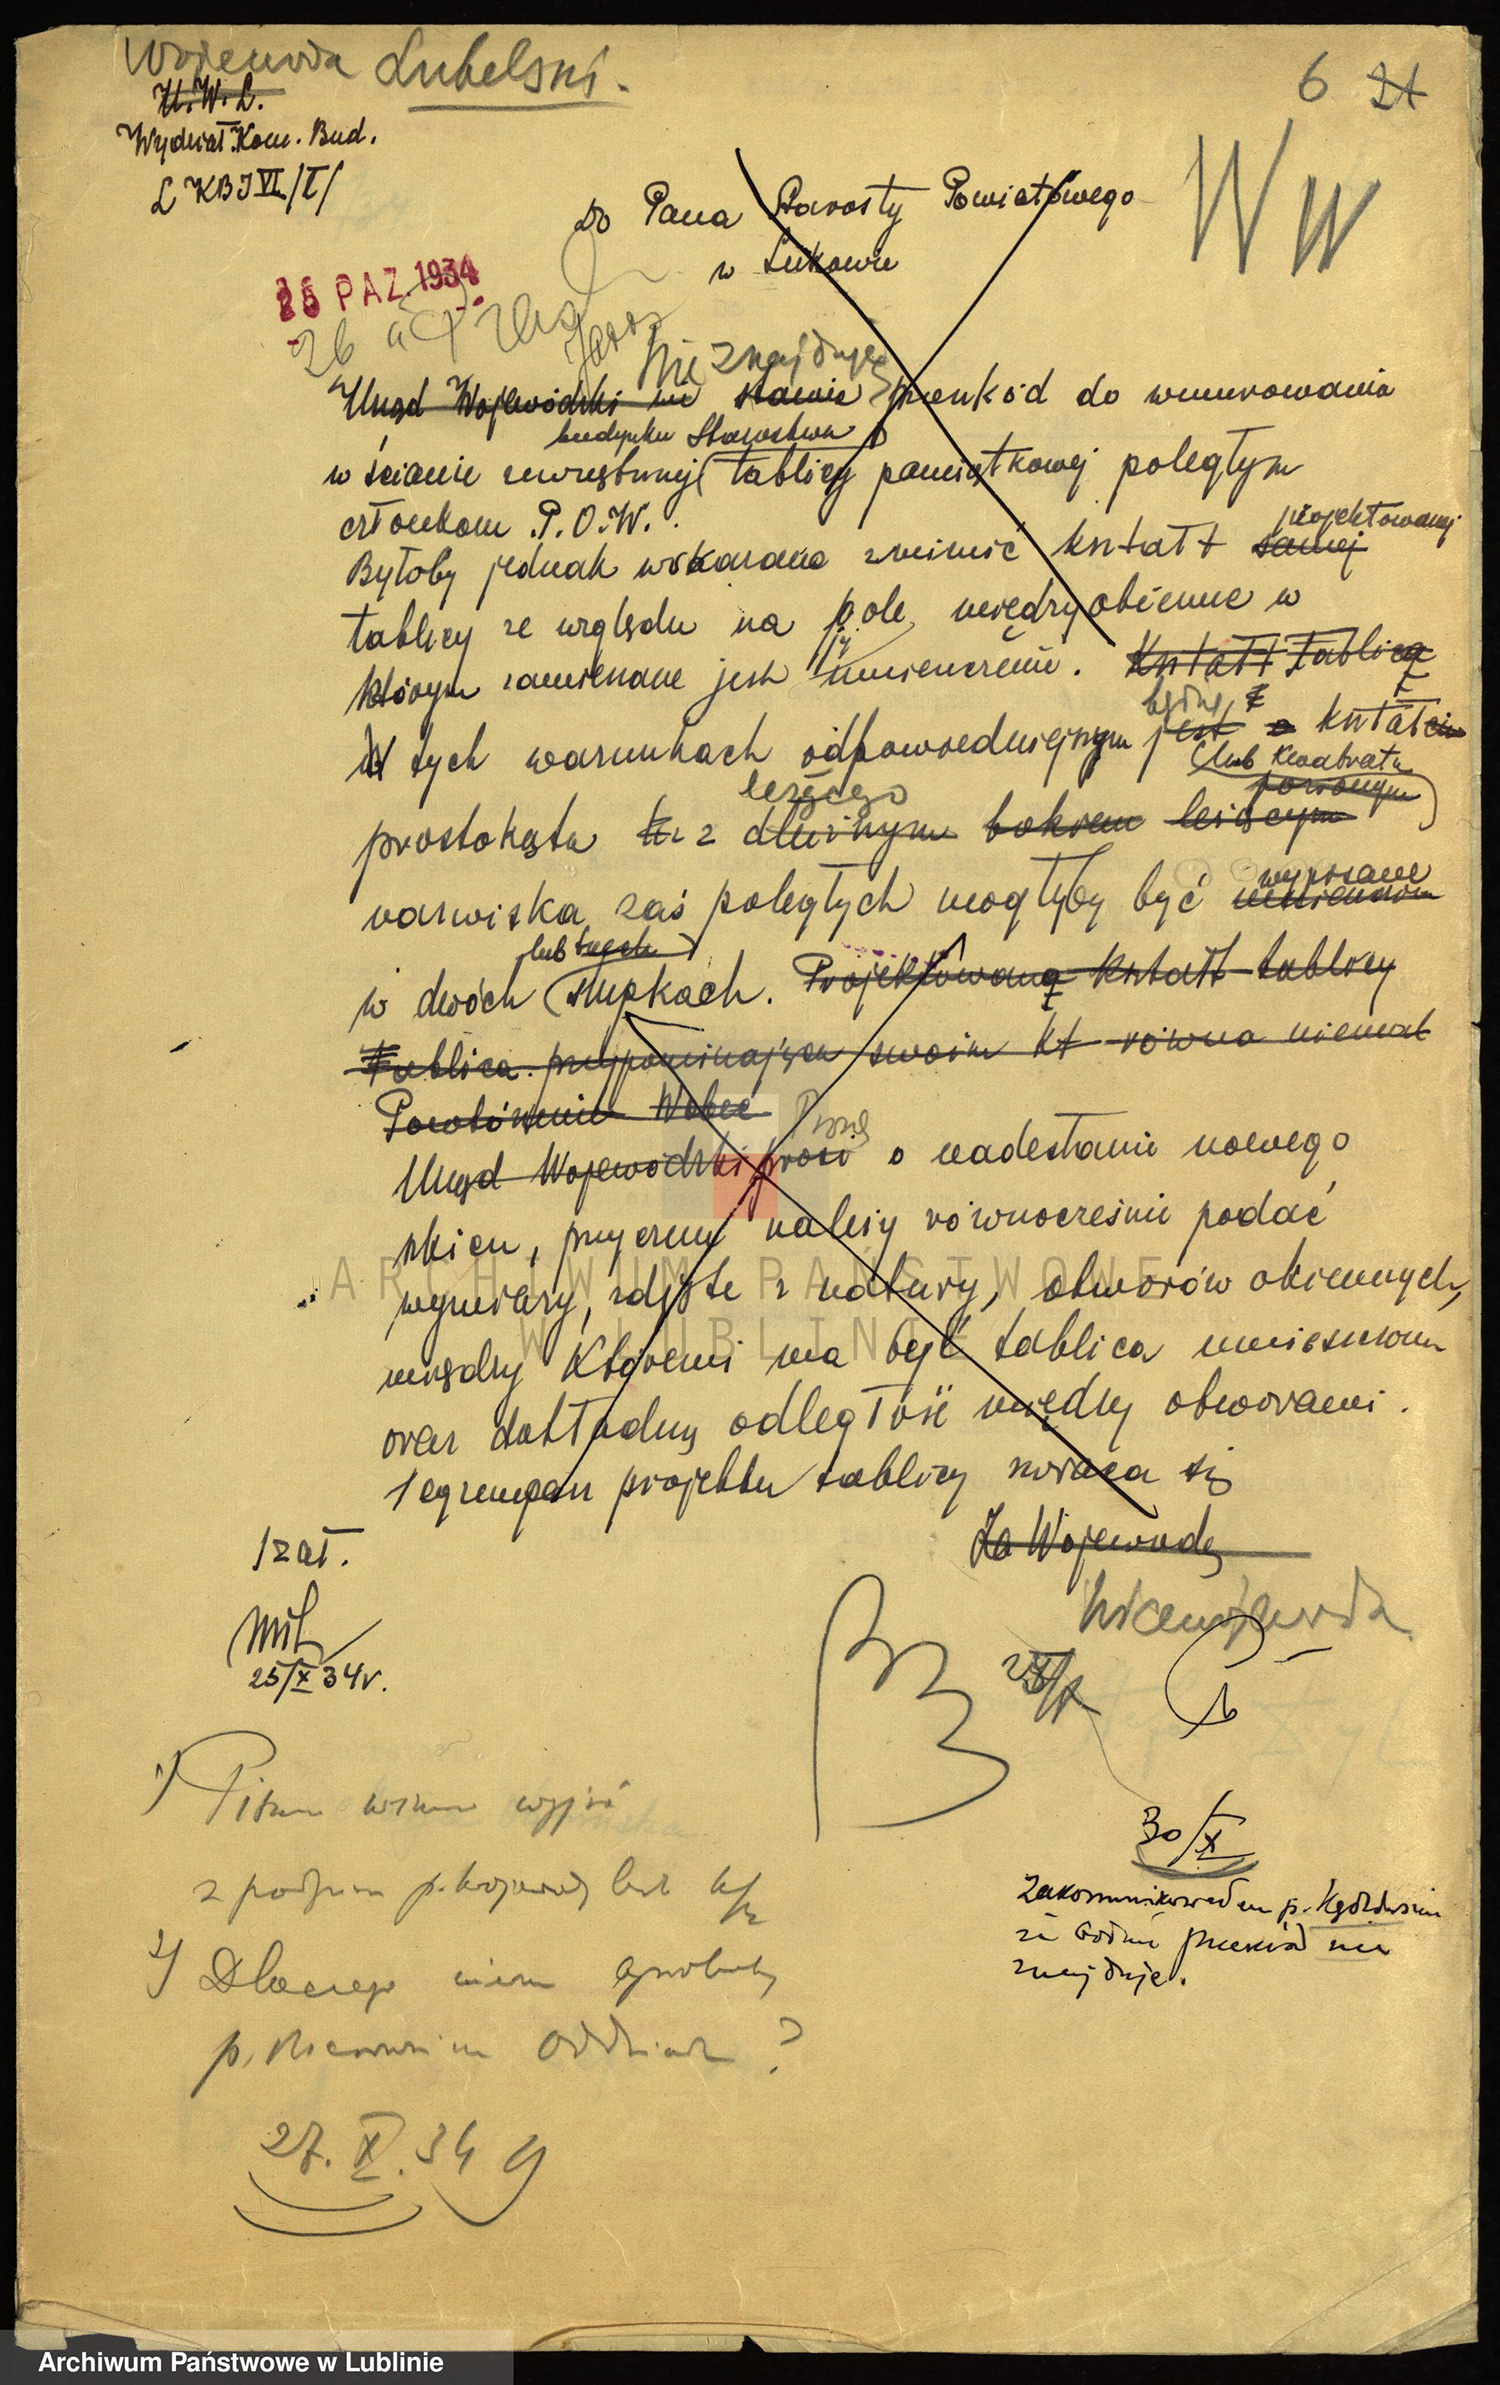 Wojewoda Lubelski.
U.W.L.
Wydział Kom. Bud.
L KBJ VI/I/
6 21
W W
Do Pana Starosty Powiatowego
w Łukowie
25 PAZ. 1934
Nie znajduję
Urząd Wojewódzki nie stawia przeszkód do wmurowania
budynku Starostwa
w ścianie zewnętrznej tablicy pamiątkowej poległym
członkom P.O.W.
projektowanej
Byłoby jednak wskazane zmienić kształt samej
tablicy ze względu na pole międzyokienne w
którym zamierzane jest jej umieszczenie. Kształt tablicą
będzie
W tych warunkach odpowiedniejszym jest o kształcie
(lub kwadratu
leżącego poziomym)
prostokąta z dłuższym bokiem leżącym
wypisane
nazwiska zaś poległych mogłyby być umieszczone
lub trzech
w dwóch słupkach. Projektowaną kształt tablicy
Tablica przypominająca swoim kt równa niemal
Powtórzenie Wobec
Proszę
Urząd Wojewódzki prosi o nadesłanie nowego
szkicu, przyczem należy równocześnie podać
wymiary, zdjęte z natury, otworów okiennych,
między któremi ma być tablica umieszczona
oraz dokładną odległość między otworami.
1 egzemplarz projektu tablicy zwraca się
1 zał.
Za Wojewodę
Wicewojewoda
25/X 34 r.
1) Pismo winno wyjść
z podpisem p. Wojewody lub
2) Dlaczego niema aprobaty
p. Kierownika Oddziału ?
27. X. 34
30/X
Zakomunikowałem p.
że żadnych przeszkód nie
znajduje.
ARCHIWUM PAŃSTWOWE
W LUBLINIE
Archiwum Państwowe w Lublinie